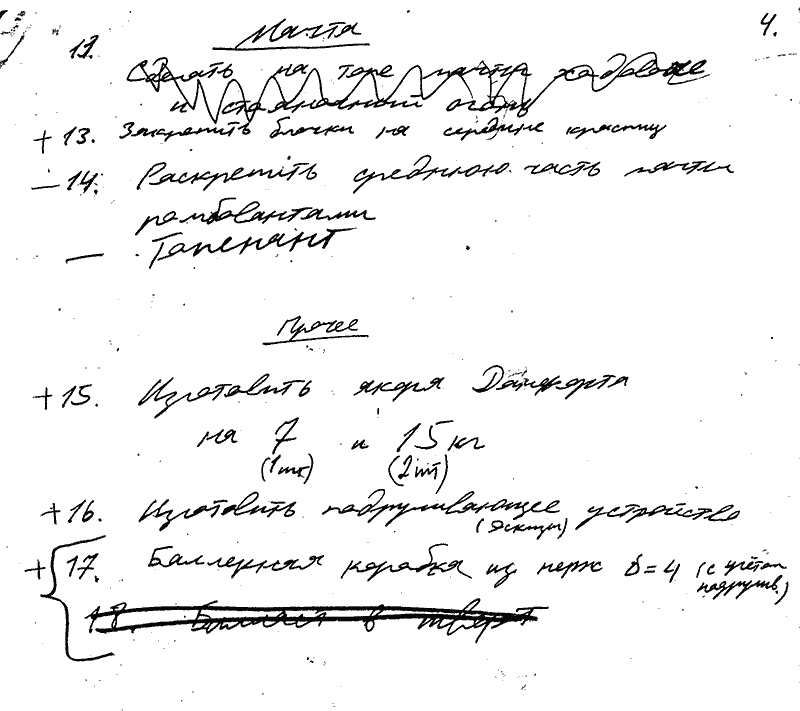 4.
Мачта
13.
Сделать на топе мачты ходовые
и стояночный огонь
+ 13. Закрепить блочки на середине краспиц
— 14. Раскрепить среднюю часть мачты
ромбовантами
— Топенант
Прочее
+ 15. Изготовить якоря Данфорта
на 7 и 15 кг
(1шт) (2шт)
+ 16. Изготовить подруливающее устройство
(эскизы)
+ 17. Баллерная коробка из нерж δ=4 (с учётом
подрулив.)
18. Балласт в